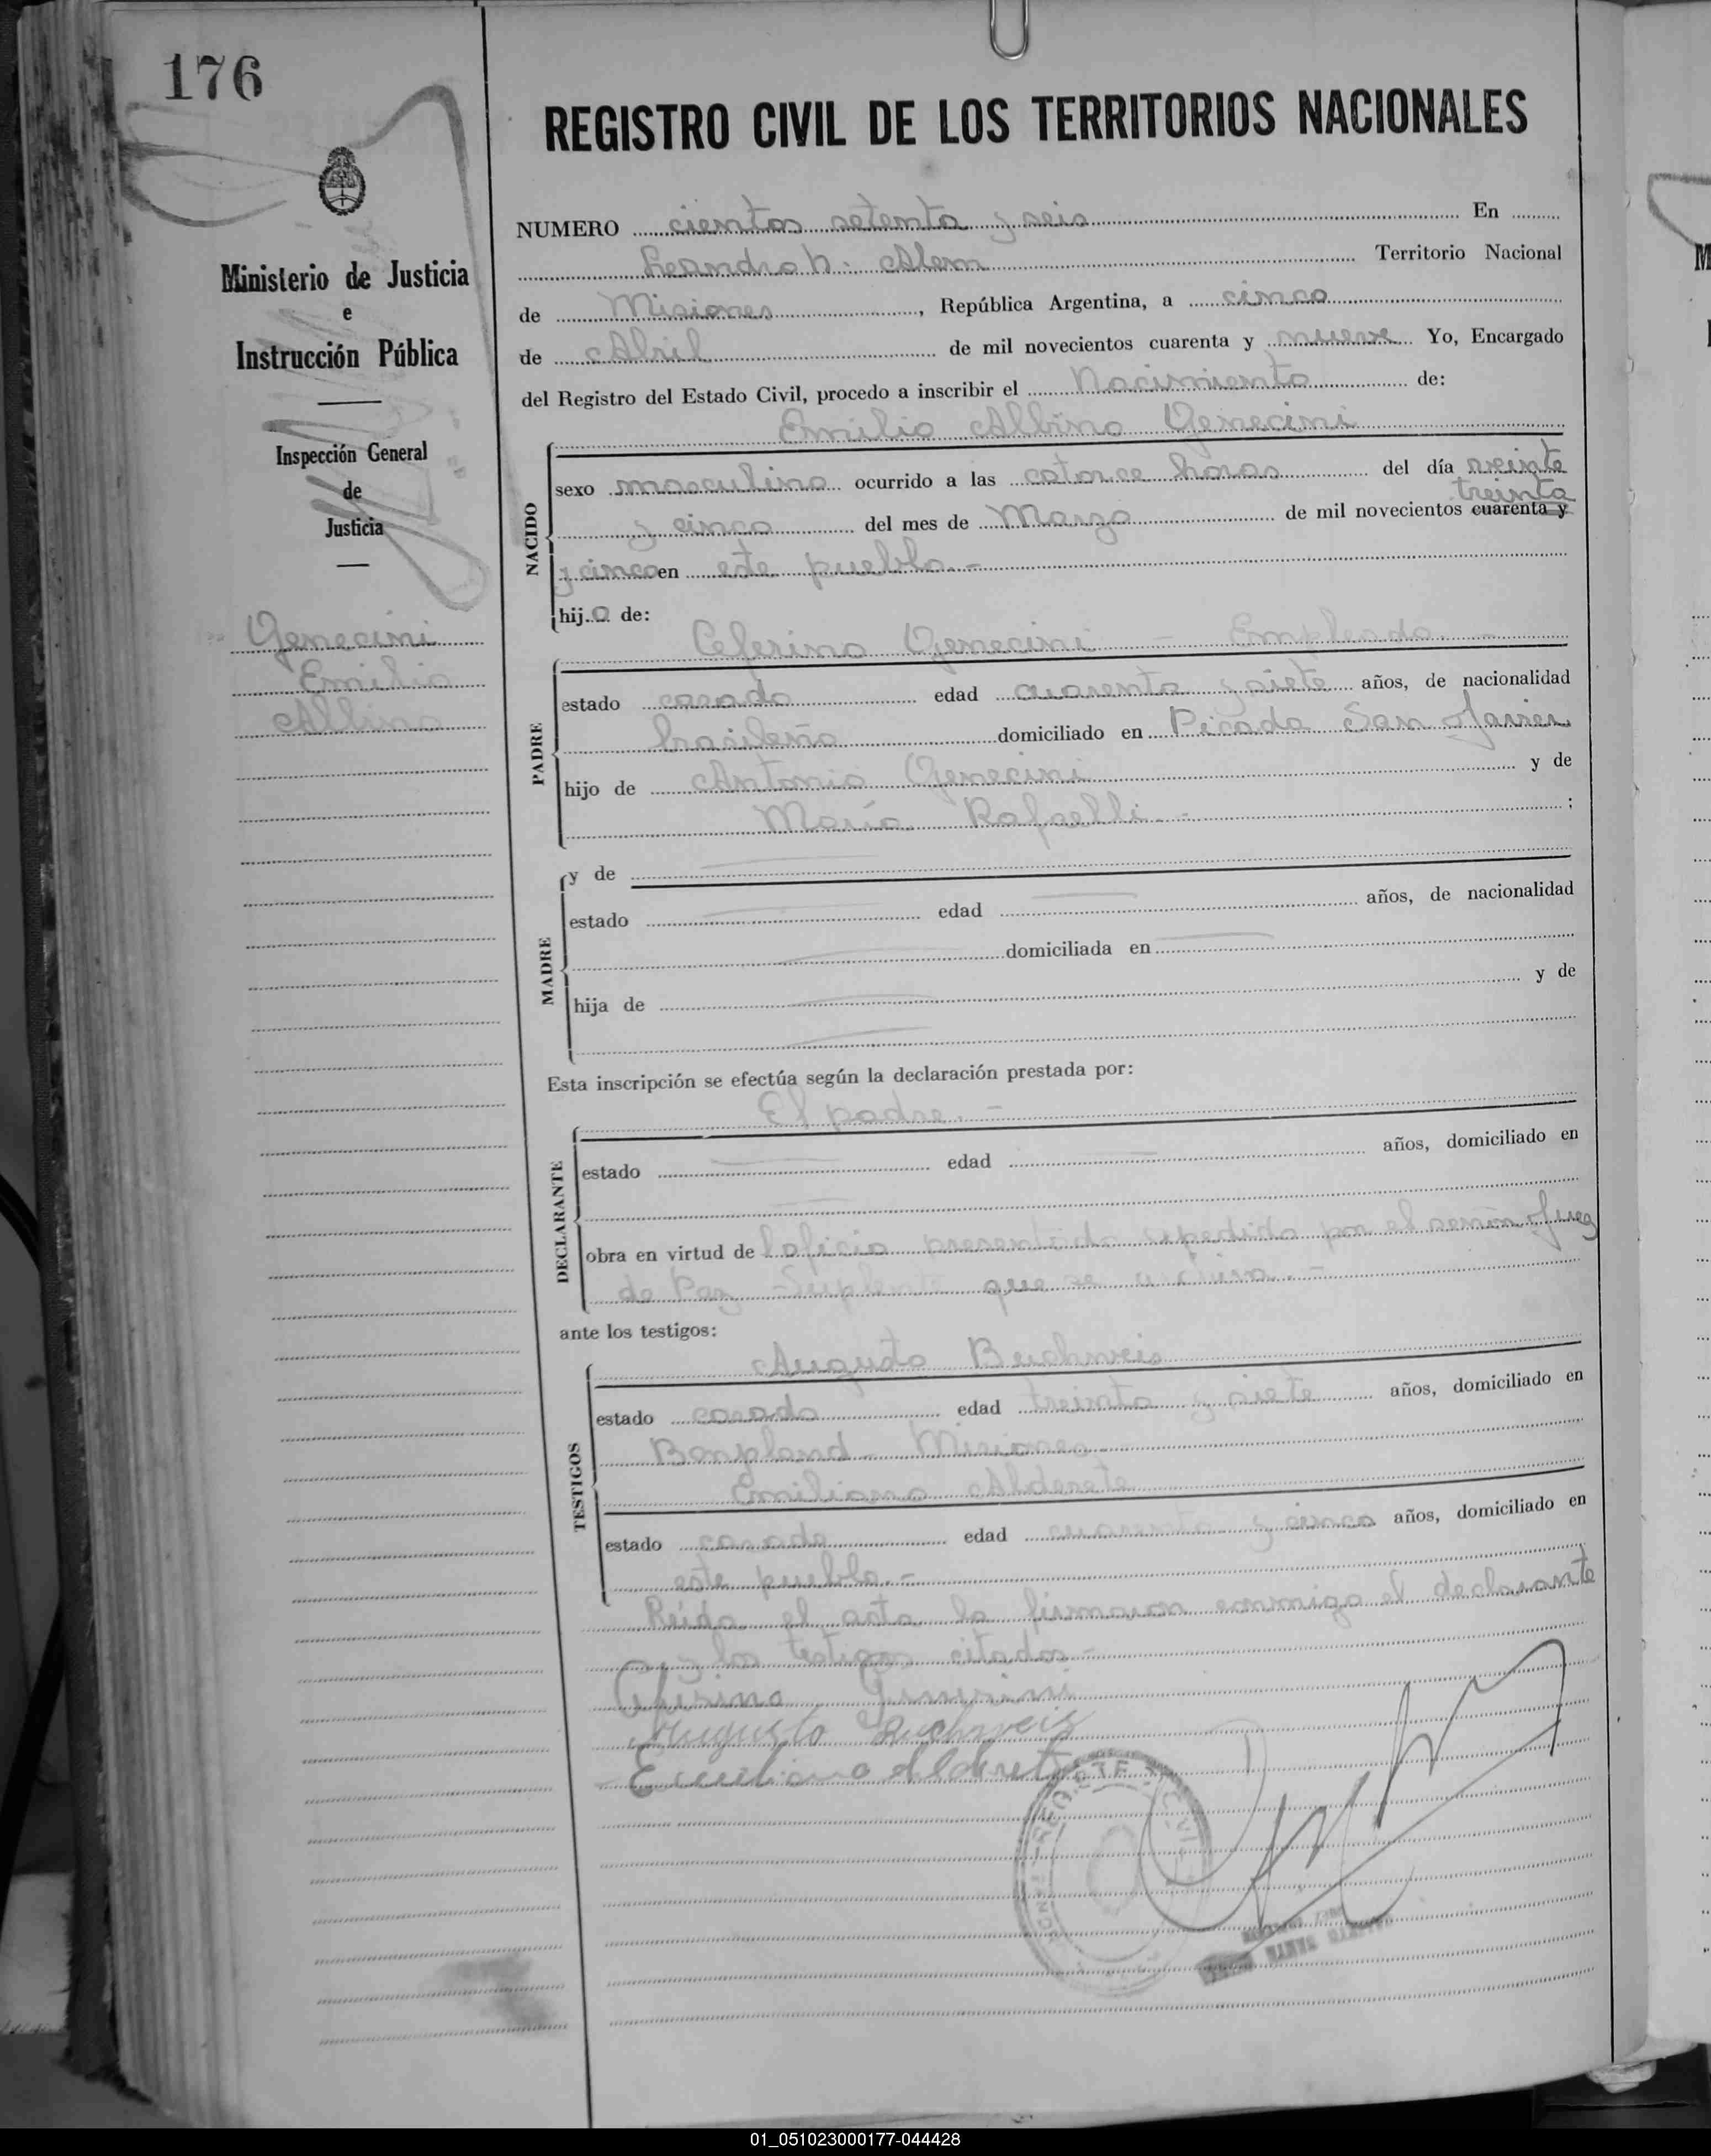 176
Ministerio de Justicia
e
Instrucción Pública
Inspección General
de
Justicia
Genecini
Emilio
Albino
REGISTRO CIVIL DE LOS TERRITORIOS NACIONALES
NUMERO cientos setenta y seis En
Leandro N. Alem Territorio Nacional
de Misiones, República Argentina, a cinco
de Abril de mil novecientos cuarenta y nueve Yo, Encargado
del Registro del Estado Civil, procedo a inscribir el Nacimiento de:
Emilio Albino Genecini
NACIDO
sexo masculino ocurrido a las catorce horas del día veinte
treinta
y cinco del mes de Marzo de mil novecientos cuarenta y
y cinco en este pueblo.-
hijo de:
Ceferino Genecini - Empleado -
PADRE
estado casado edad cuarenta y siete años, de nacionalidad
brasileño domiciliado en Picada San Javier
hijo de Antonio Genecini y de
María Rafaelli.- ;
MADRE
y de
estado edad años, de nacionalidad
domiciliada en
hija de y de
Esta inscripción se efectúa según la declaración prestada por:
El padre.-
DECLARANTE
estado edad años, domiciliado en
obra en virtud de oficio presentado expedido por el señor Juez
de Paz Suplente que se archiva.-
ante los testigos:
TESTIGOS
Augusto Buchweis
estado casado edad treinta y siete años, domiciliado en
Bonpland - Misiones
Emiliano Alderete
estado casado edad cuarenta y cinco años, domiciliado en
este pueblo.-
Leída el acta la firmaron conmigo el declarante
y los testigos citados-
Ceferino Genecini
Augusto Buchweis
Emiliano Alderete
01_051023000177-044428